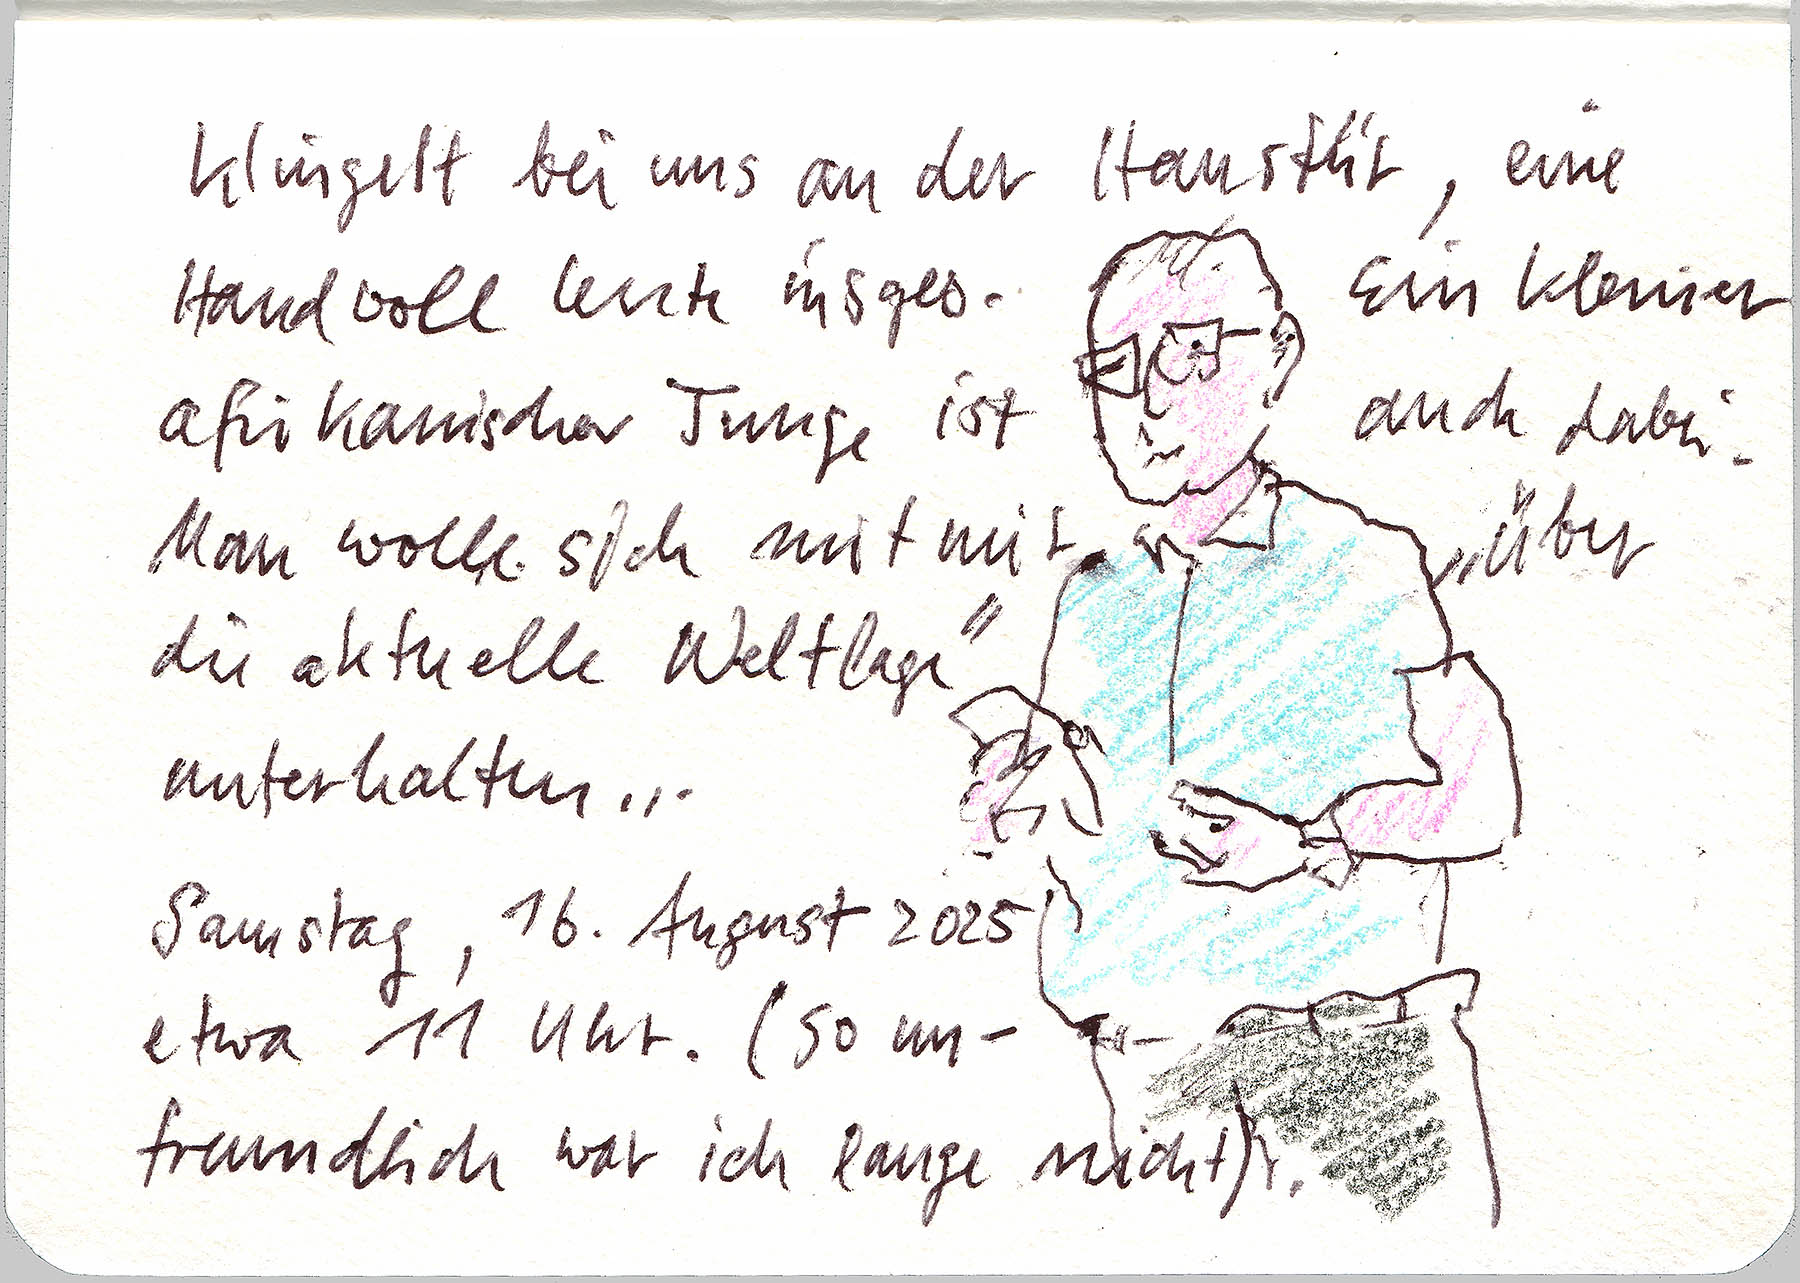 Klingelt bei uns an der Haustür, eine
Handvoll Leute insges. Ein kleiner
afrikanischer Junge ist auch dabei.
Man wolle sich mit mir „über
die aktuelle Weltlage"
unterhalten...
Samstag, 16. August 2025
etwa 11 Uhr. (So un-
freundlich war ich lange nicht).